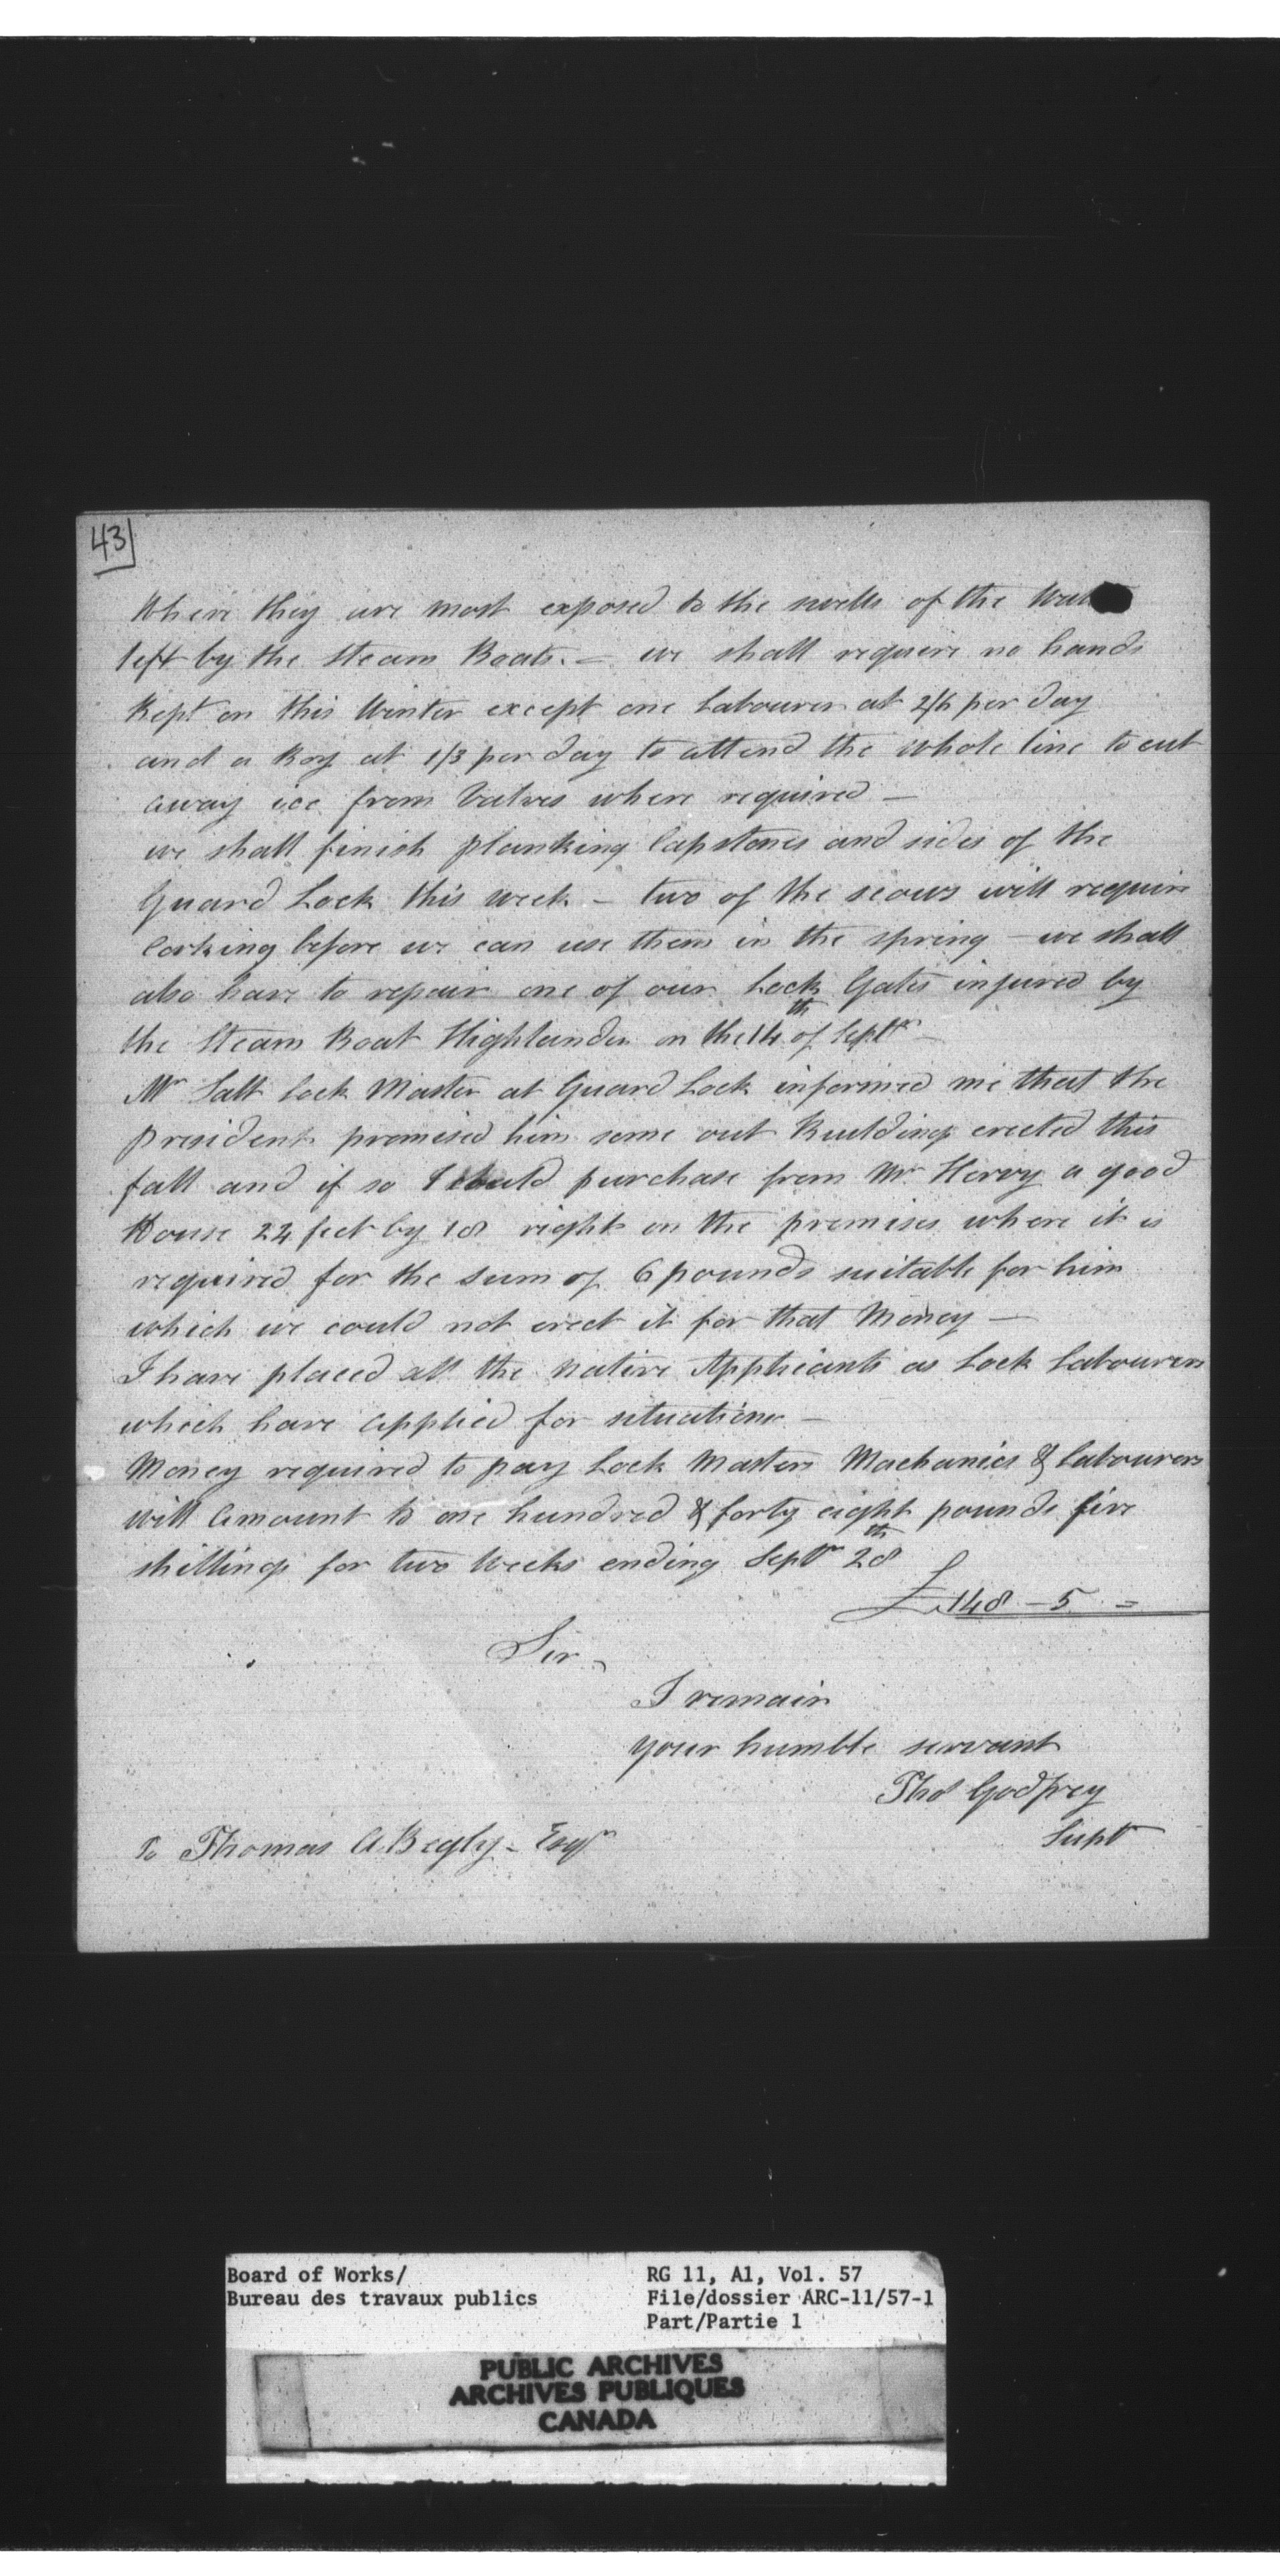 43
Where they are most exposed to the swells of the Wat
left by the Steam Boats. — we shall require no hands
Kept on this Winter except one Labourer at 2/6 per day
and a Boy at 1/3 per day to attend the whole line to cut
away ice from Valves where required —
we shall finish planking Capstones and sides of the
Guard Lock this week — two of the scows will require
Corking before we can use them in the spring — we shall
also have to repair one of our Lock Gates injured by
the Steam Boat Highlander on the 14th of Septr —
Mr Salt Lock Master at Guard Lock informed me that the
President promised him some out Buildings erected this
fall and if so I could purchase from Mr Hervy a good
House 24 feet by 18 right on the premises where it is
required for the sum of 6 pounds suitable for him
which we could not erect it for that Money —
I have placed all the native Applicants as Lock Labourers
which have applied for situations —
Money required to pay Lock Masters Machanics & Labourers
will Amount to one hundred & forty eight pounds five
shillings for two Weeks ending Septr 28th
£148 — 5 =
Sir,
I remain
your humble servant
Thos Godfrey
Supt
To Thomas A. Begly — Esqr
Board of Works/
Bureau des travaux publics
RG 11, A1, Vol. 57
File/dossier ARC-11/57-1
Part/Partie 1
PUBLIC ARCHIVES
ARCHIVES PUBLIQUES
CANADA